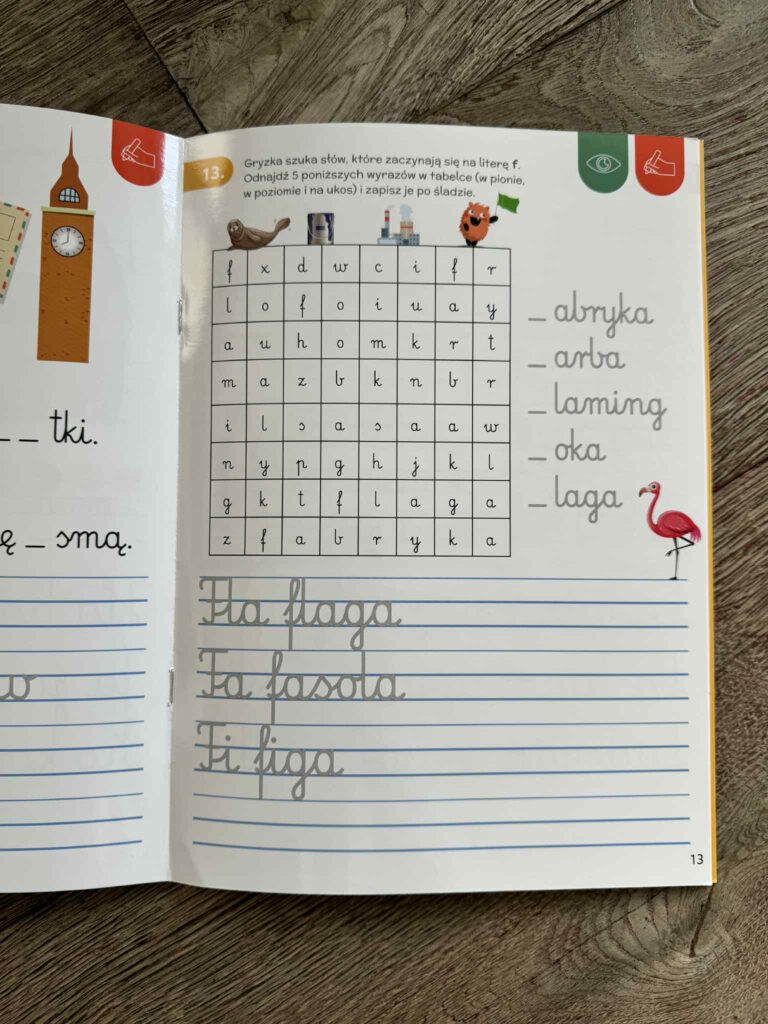 _ _ tki.
ę _ smą.
w
13.
Gryzka szuka słów, które zaczynają się na literę f.
Odnajdź 5 poniższych wyrazów w tabelce (w pionie,
w poziomie i na ukos) i zapisz je po śladzie.
f x d w c i f r
l o f o i u a y
a u h o m k r t
m a z b k n b r
i l s a s a a w
n y p g h j k l
g k t f l a g a
z f a b r y k a
_ abryka
_ arba
_ laming
_ oka
_ laga
Fla flaga
Fa fasola
Fi figa
13